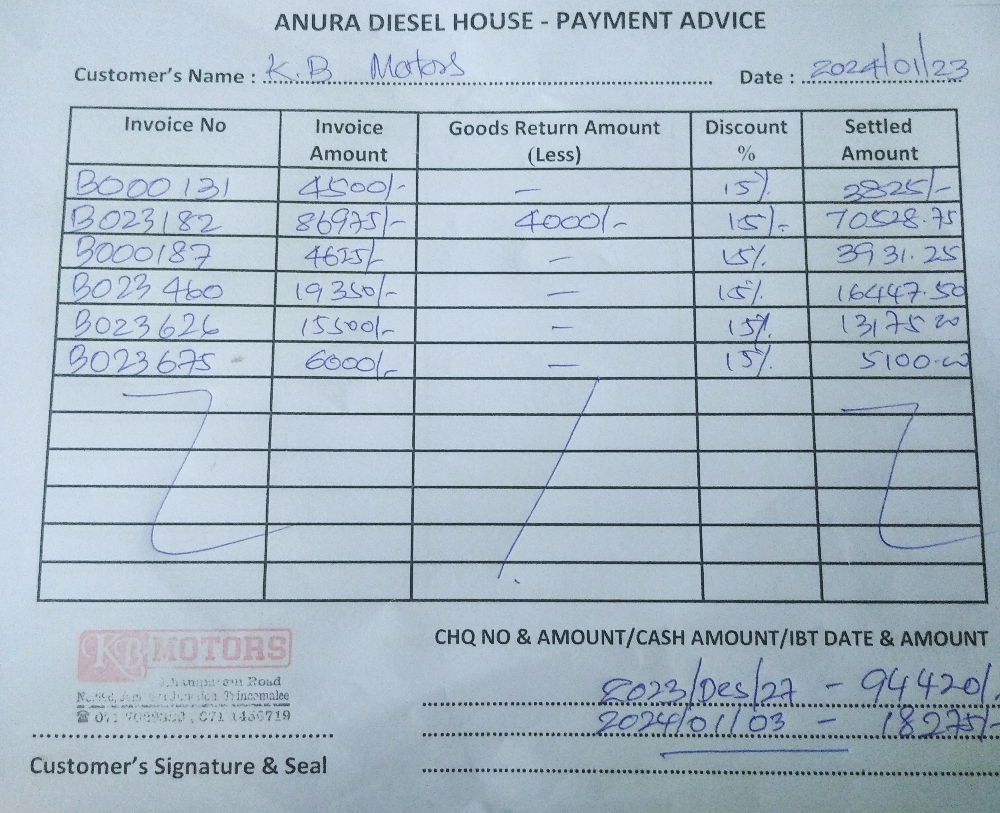 ANURA DIESEL HOUSE - PAYMENT ADVICE
Customer's Name : K.B Motors Date : 2024/01/23
Invoice No Invoice Amount Goods Return Amount (Less) Discount % Settled Amount
B000131 4500/- — 15% 3825/-
B023182 86975/- 4000/- 15%- 70528.75
B000187 4625/- — 15% 3931.25
B023460 19350/- — 15% 16447.50
B023626 15500/- — 15% 13175.00
B023675 6000/- — 15% 5100.00
KB MOTORS
Road
Trincomalee
CHQ NO & AMOUNT/CASH AMOUNT/IBT DATE & AMOUNT
2023/Des/27 - 94420/.
2024/01/03 - 18275/-
Customer's Signature & Seal